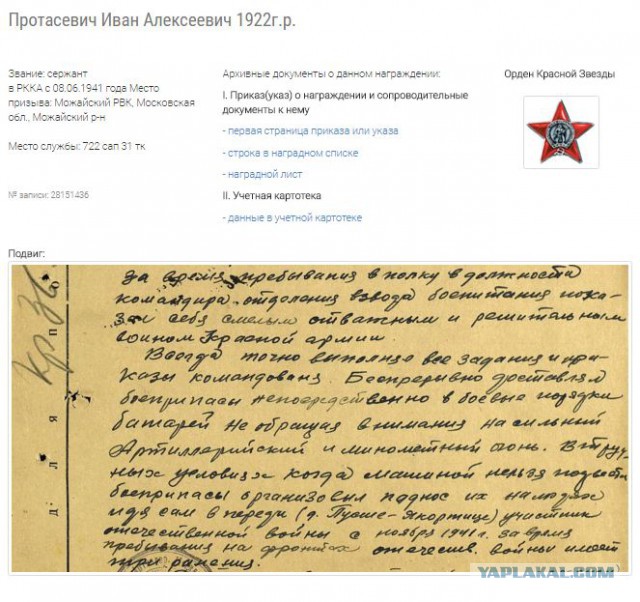 Протасевич Иван Алексеевич 1922г.р.
Звание: сержант
в РККА с 08.06.1941 года Место
призыва: Можайский РВК, Московская
обл., Можайский р-н
Место службы: 722 сап 31 тк
№ записи: 28151436
Архивные документы о данном награждении:
I. Приказ(указ) о награждении и сопроводительные
документы к нему
- первая страница приказа или указа
- строка в наградном списке
- наградной лист
II. Учетная картотека
- данные в учетной картотеке
Орден Красной Звезды
Подвиг:
Кр. Зв.
для по
за время пребывания в полку в должности
командира отделения взвода боепитания пока-
зал себя смелым отважным и решительным
воином Красной армии.
Всегда точно выполнял все задания и при-
казы командования. Беспрерывно доставлял
боеприпасы непосредственно в боевые порядки
батарей не обращая внимания на сильный
Артиллерийский и минометный огонь. В труд-
ных условиях когда машиной нельзя подвести
боеприпасы организовыл поднос их на людях
идя сам в переди (д. Пусше-Якортице) участник
отечественной войны с ноября 1941 г. За время
пребывания на фронтах отечеств. войны имеет
три ранения.
YAPLAKAL.COM